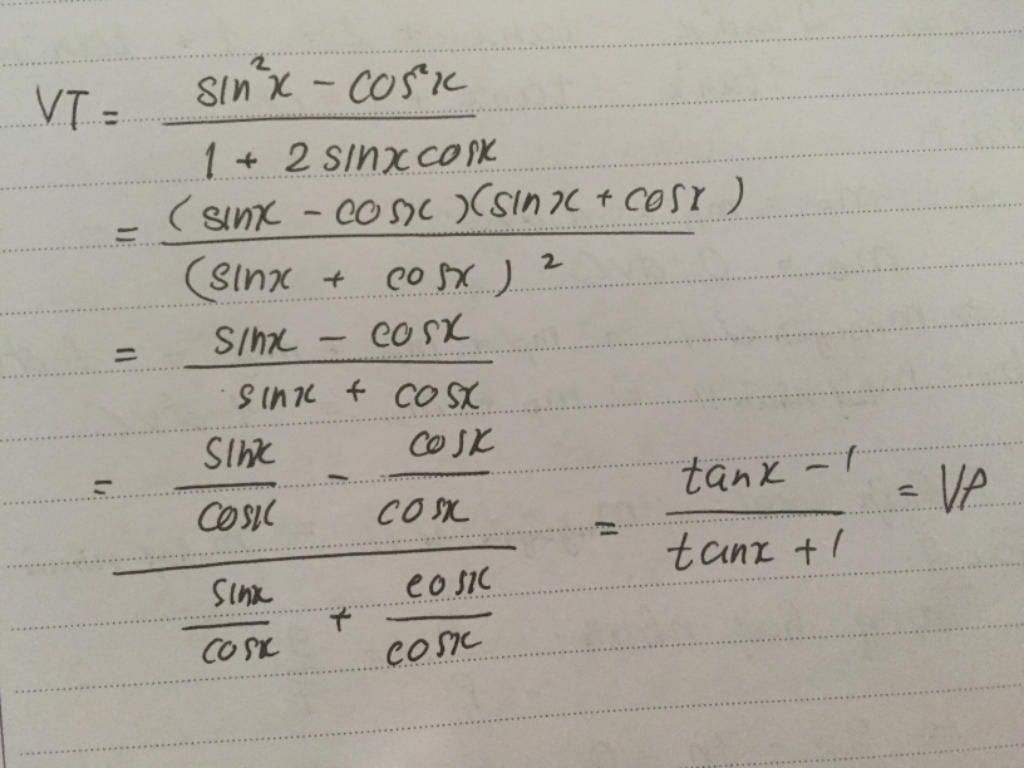 VT = (sin²x - cos²x) / (1 + 2 sinx cosx)
= (sinx - cosx)(sinx + cosx) / (sinx + cosx)²
= (sinx - cosx) / (sinx + cosx)
= (sinx/cosx - cosx/cosx) / (sinx/cosx + cosx/cosx) = (tanx - 1) / (tanx + 1) = VP